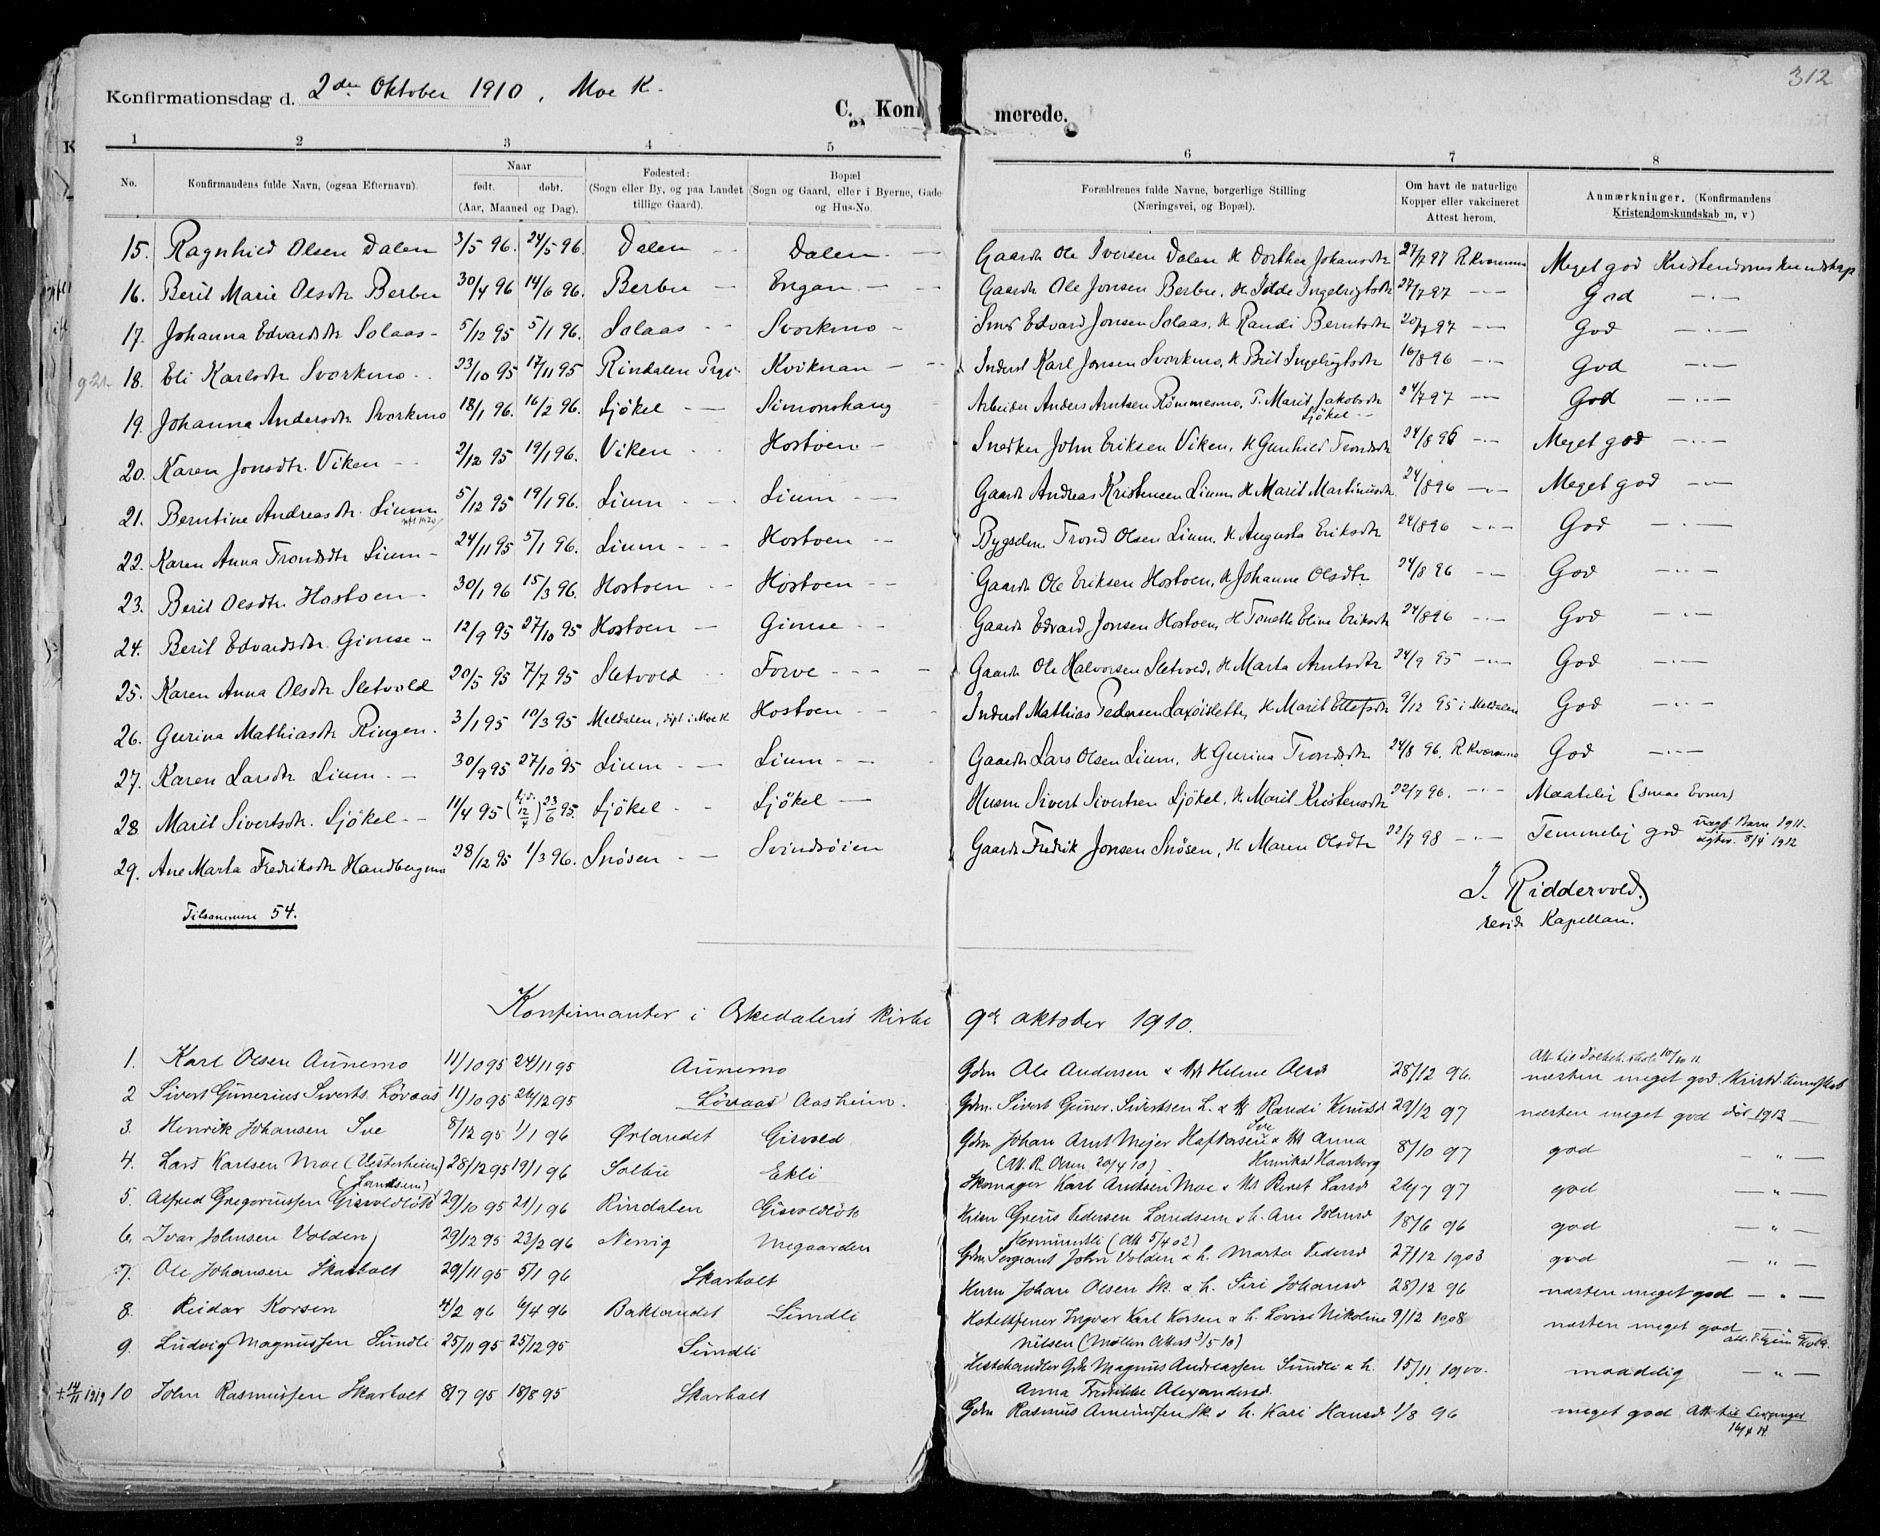 312
Konfirmationsdag d. 2den Oktober 1910, Moe K.
C. Konfirmerede.
1 2 3 4 5 6 7 8
No. Konfirmandens fulde Navn, (ogsaa Efternavn). Naar født. døbt. (Aar, Maaned og Dag). Fødested: (Sogn eller By, og paa Landet tillige Gaard). Bopæl (Sogn og Gaard, eller i Byerne, Gade og Hus-No. Forældrenes fulde Navne, borgerlige Stilling (Næringsvei, og Bopæl). Om havt de naturlige Kopper eller vakcineret Attest herom. Anmærkninger. (Konfirmandens Kristendomskundskab m, v)
15. Ragnhild Olsen Dalen 3/5 96. 24/5 96. Dalen Dalen Gaardr Ole Iversen Dalen H Dorthea Johansdtr 27/7 97 R Kværnmo Meget god Kristendomskundskap
16. Berit Marie Olsdtr Berbu 30/4 96 14/6 96. Berbu Engan Gaardr Ole Jonsen Berbu. H Idde Ingebrigtsdtr 27/7 97 -·- God -·-
17. Johanna Edvardsdtr Solaas 5/12 95 5/1 96. Solaas Svorkmo Smed Edvard Jonsen Solaas, H Randi Berntsdtr 20/7 97 -·- God -·-
18. Eli Karlsdtr Svorkmo 23/10 95 17/11 95 Rindalen Prgj. Kviknan Inderst Karl Jonsen Svorkmo, H Brit Ingebrigtsdtr 16/8 96 -·- God -·-
19. Johanna Andersdtr Svorkmo 18/1 96. 16/2 96. Ljökel Simonshaug Arbeider Anders Arntsen Römmesmo, P. Marit Jakobsdtr Ljökel 24/7 97 -·- God -·-
20. Karen Jonsdtr. Viken 2/12 95 19/1 96. Viken Hostoen Snedker John Eriksen Viken, H Gunhild Trondsdtr 24/8 96 -·- Meget god -·-
21. Berntine Andreasdtr. Lium 5/12 95 19/1 96. Lium Lium Gaardr Andreas Kristensen Lium, H Marit Martinusdtr 24/8 96 -·- Meget god -·-
22. Karen Anna Trondsdtr Lium 24/11 95 5/1 96. Lium Hostoen Bygselm. Trond Olsen Lium, H Augusta Eriksdtr 24/8 96 -·- God -·-
23. Berit Olsdtr. Hostoen 30/1 96 15/3 96. Hostoen Hostoen Gaardr Ole Eriksen Hostoen, H Johanne Olsdtr 24/8 96 -·- God -·-
24. Berit Edvardsdtr. Gimse 12/9 95 27/10 95 Hostoen Gimse Gaardr Edvard Jonsen Hostoen, H Tonette Eline Eriksdtr 24/8 96 -·- God -·-
25. Karen Anna Olsdtr Sletvold 20/5 95 7/7 95 Sletvold Forve Gaardr Ole Halvorsen Sletvold, H Marta Arntsdtr 24/9 95 -·- God -·-
26. Gurina Mathiasdtr Ringen. 3/1 95 10/3 95 Meldalen, döpt i Moe K Hostoen Inderst Mathias Pedersen Laxöisletten, H Marit Ellefsdtr 9/12 95 i Meldalen God -·-
27. Karen Larsdtr Lium 30/9 95 27/10 95 Lium Lium Gaardr Lars Olsen Lium, H Gurina Trondsdtr 24/8 96. R Kværnmo God -·-
28 Marit Sivertsdtr. Ljökel 11/4 95 (hj.d. 12/4) 23/6 95. Ljökel Ljökel Husm Sivert Sivertsen Ljökel, H Marit Kristensdtr 22/7 96. -·- Maatelig (smaa Evner)
29. Ane Marta Fredriksdtr Handbergmo 28/12 95 1/3 96. Snösen Svindsöien Gaardr Fredrik Jonsen Snösen, H Maren Olsdtr 22/7 98 -·- Temmelig god uægt Barn 1911 5/4 1912
Tilsammen 54.
J. Riddervold,
resid. Kapellan.
Konfirmanter i Orkedalens kirke 9de oktober 1910.
1. Karl Olsen Aunemo 11/10 95 24/11 95 Aunemo Gdm Ole Andersen & Helene Olsd 28/12 96. Att til Folkeh.skole 10/10 11 næsten meget god Kristd.kundskab
2 Sivert Gunerius Siverts. Lövaas 11/10 95 26/12 95 Lövaas Aasheim. Gdm. Sivert Guner. Sivertsen L. & Randi Knutsd 29/2 97 næsten meget god död 1913
3. Henrik Johansen Sve 8/12 95 1/1 96 Ørlandet Gisvold Gdm Johan Arnt Mejer Haftorsen Sve & Anna Henriksd Haarberg (Att. R. Olsen 20/4 10) 8/10 97 god — „ —
4. Lars Karlsen Moe (Vesterheim) 28/12 95 19/1 96 Solbu Ekli Skomager Karl Andersen Moe & Beret Larsd 26/7 97 god — „ —
5. Alfred Gregoriussen Gisvoldlök (Landsem) 29/10 95 21/1 96 Rindalen Gisvoldlök Husm Greus Pedersen Landsem & h. Ane Johnsd 18/6 96 god — „ —
6. Ivar Johnsen Volden 29/12 95 23/2 96 Nervig Megaarden Gdm Sergeant John Volden & h. Marta Pedersd (Att 5/4 02) 27/12 1903 god — „ —
7. Ole Johansen Skarholt 29/11 95 5/1 96 Skarholt Husm Johan Olsen Sk. & h. Siri Johansd 28/12 96 næsten meget god — „ —
8. Reidar Korsen 4/2 96 6/4 96 Baklandet Sundli Hoteltjener Ingvar Karl Korsen & h. Lovise Nikoline Nilsen (Möllen Attest 3/5 10) 9/12 1908 næsten meget god — „ —
9. Ludvig Magnussen Sundli 25/11 95 25/12 95 Sundli Hestehandler Gdr Magnus Andreassen Sundli & h. Anna Fredrikke Alexandersd. 15/11 1900. maadelig — „ —
+ 14/11 1919 10 John Rasmussen Skarholt 8/7 95 18/8 95 Skarholt Gdm Rasmus Amundsen Sk. & h. Kari Hansd 1/8 96 meget god Att til Levanger 16/4 11.